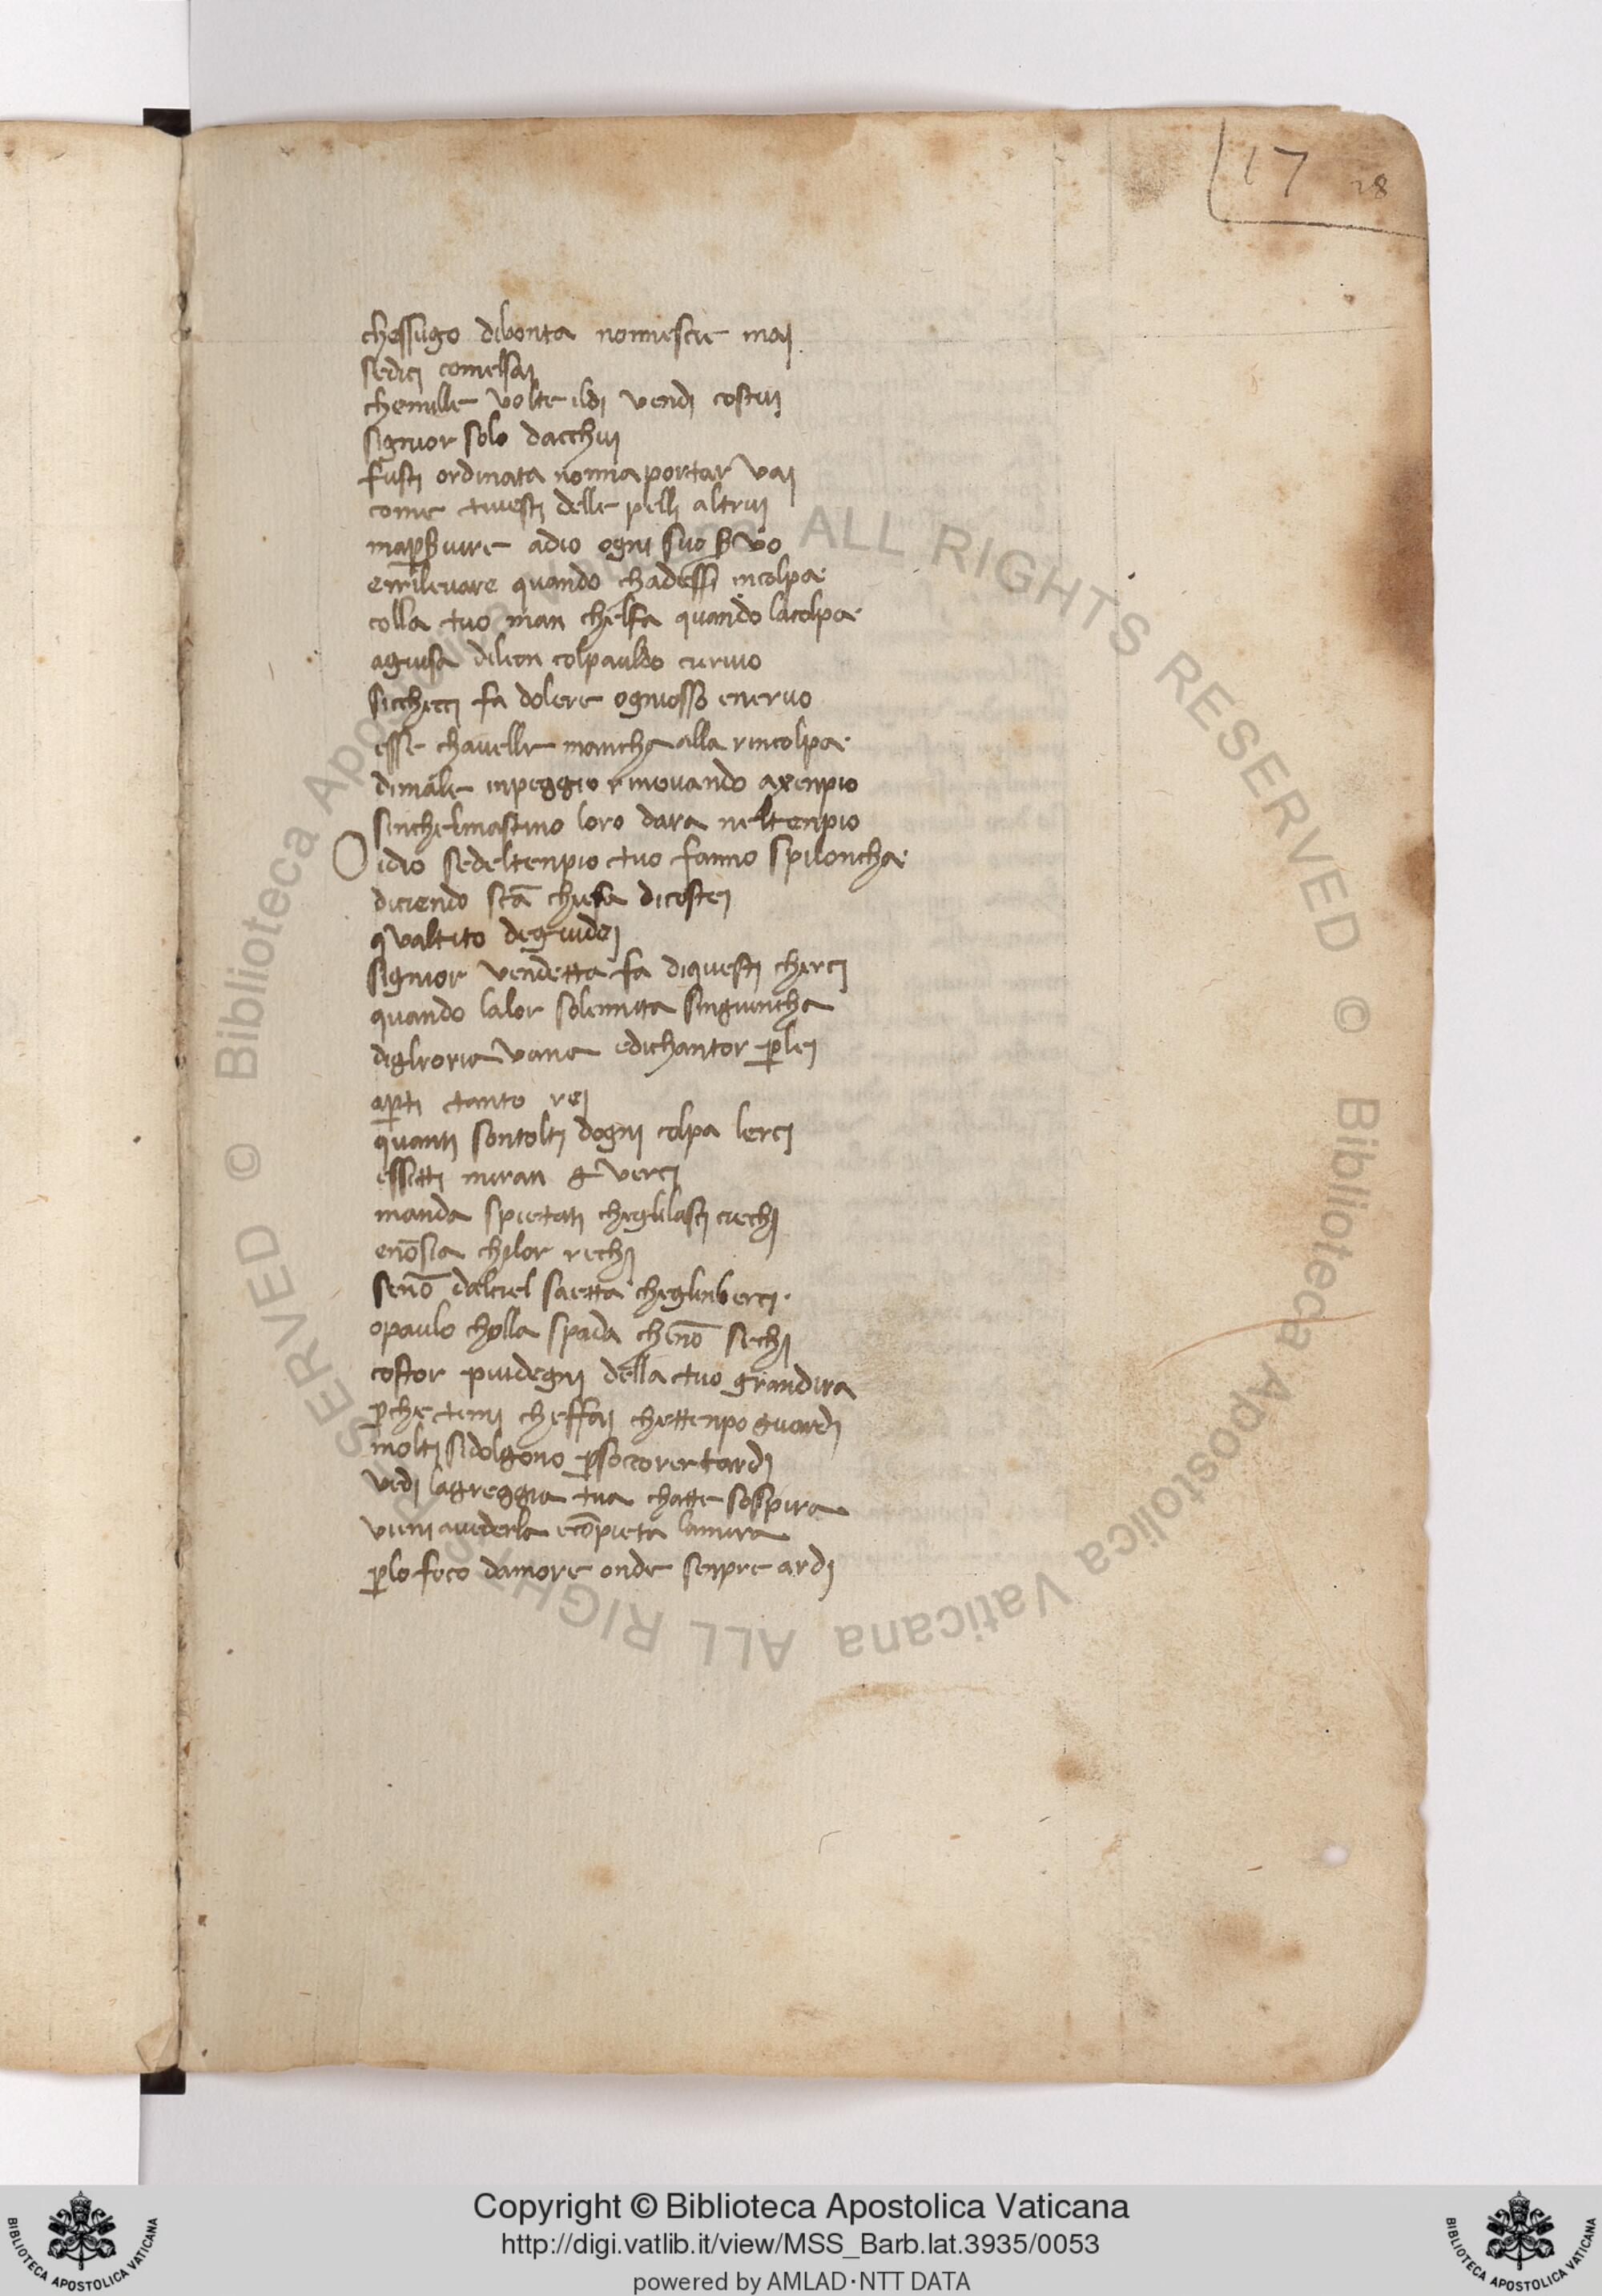 17 28
chessugo dibonta nonnescie maj
sedicj comelsaj
chemille volte ildj vendj costuj
signior solo dacchuj
fustj ordinata nonna portar vaj
come tiuestj delle pellj altruj
ma adio ogni suo
errilevare quando chadessj incolpa
colla tuo man chelfa quando lacolpa
aguisa dilion colpauldo ceruio
sicchettj fa dolere ogniosso eneruo
esse chauelle mancha alla rincolpa
dimale inpeggio rinovando axenpio
sinchelmastino loro dara neltenpio
Oidio sedeltenpio tuo fanno spiloncha
diciendo sta chiesa dicostej
qualtito degiudej
signior vendetta fa diquestj chercj
quando lalor solennita singhioncha
diglrorie vane edichantor plej
aptj tanto rej
quantj sontoltj dognj colpa lercj
essitti miran guercj
manda spietatj cheglilastj ciechj
enosia chilor rechj
seno dalciel saetta cheglinbercj
opaulo cholla spada cheno sechj
costor piudegnj della tuo grandira
pche temj cheffaj chettenpo guardj
moltj sidolgono psocorer tardj
vedj lagreggia tua chatte sospira
vieni auederla econpieta lamira
plo foco damore onde senpre ardj
© Biblioteca Apostolica Vaticana ALL RIGHTS RESERVED © Biblioteca Apostolica Vaticana ALL RIGHTS RESERVED
Copyright © Biblioteca Apostolica Vaticana
http://digi.vatlib.it/view/MSS_Barb.lat.3935/0053
powered by AMLAD·NTT DATA
BIBLIOTECA APOSTOLICA VATICANA
BIBLIOTECA APOSTOLICA VATICANA